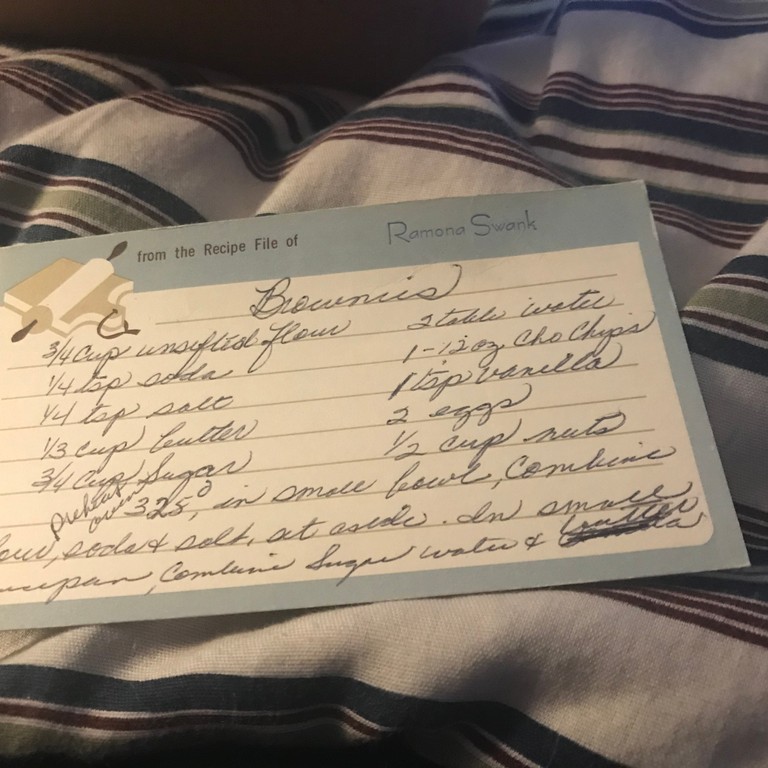 from the Recipe File of Ramona Swank
Brownies
3/4 cup unsifted flour
1/4 tsp soda
1/4 tsp salt
1/3 cup butter
3/4 cup sugar
2 table water
1-12oz Cho Chips
1 tsp vanilla
2 eggs
1/2 cup nuts
preheat oven 325°, in small bowl, combine
our, soda & salt, set aside. In small
cepan, combine sugar water & butter